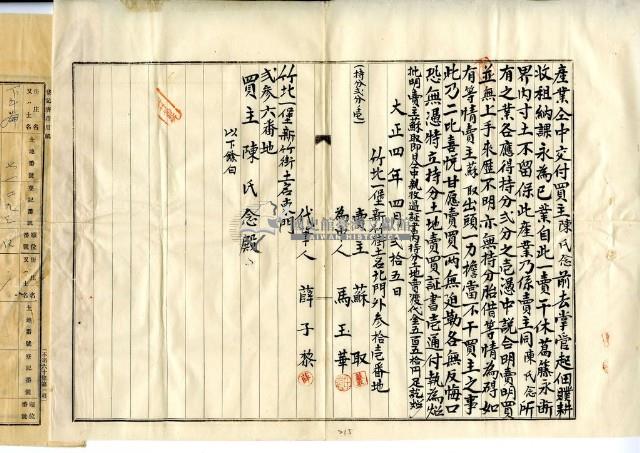 產業仝中交付買主陳氏念前去掌管起佃贌耕
收租納課永為己業自此一賣千休葛藤永斷
界內寸土不留保此產業乃係賣主同陳氏念所
有之業各應得持分弍分之壱憑中說合明賣明買
並無上手來歷不明亦無持分胎借等情為碍如
有等情賣主蘇取出頭一力擔當不干買主之事
此乃二比喜悦甘應賣買兩無迫勒各無反悔口
恐無憑特立持分土地賣買証書壱通付執為炤
批明賣主蘇取即日仝中親收過証書內持分土地賣渡代金五百五拾円足訖炤
大正四年四月弍拾五日
竹北一堡新竹街土名北門外参拾壱番地
(持分弍分ノ壱)
賣主 蘇取
為中人 馬玉華
代筆人 薛子黎
竹北一堡新竹街土名北門
弍参六番地
買主陳氏念殿
以下餘白
TAIWAN HISTORICA
215